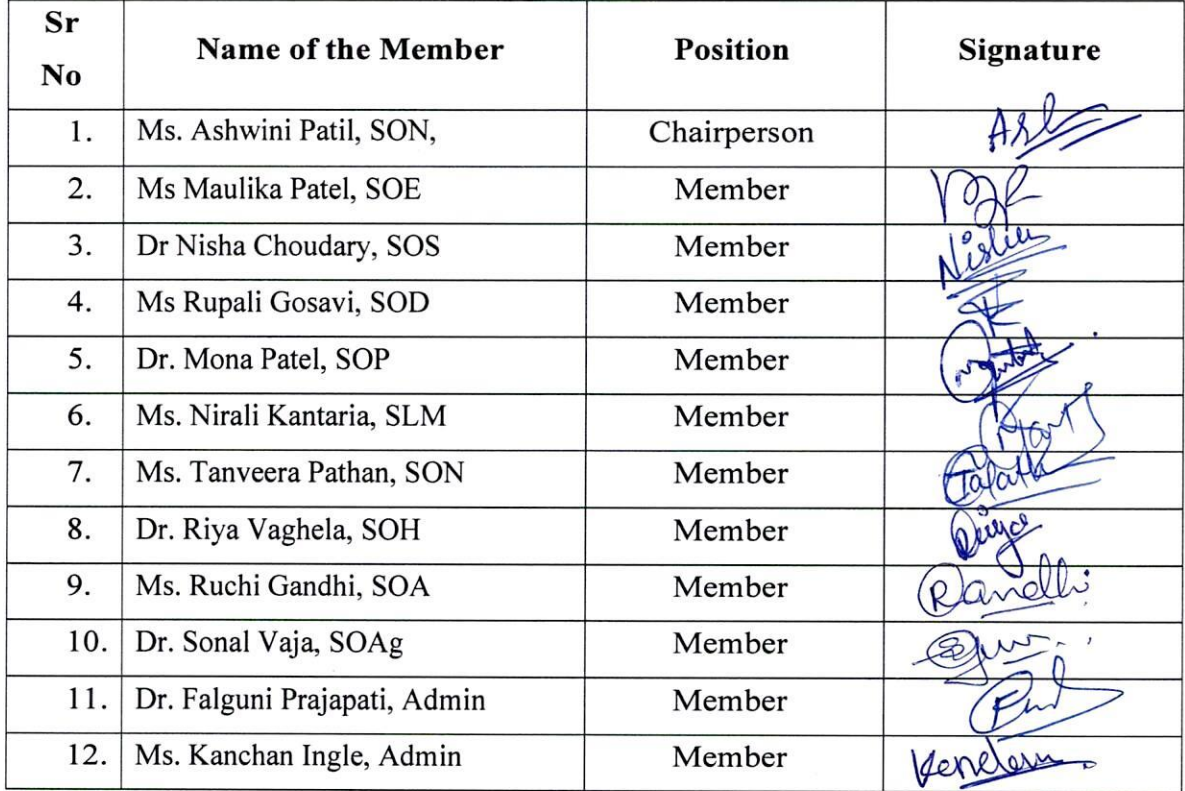 Sr No Name of the Member Position Signature
1. Ms. Ashwini Patil, SON, Chairperson
2. Ms Maulika Patel, SOE Member
3. Dr Nisha Choudary, SOS Member Nisha
4. Ms Rupali Gosavi, SOD Member
5. Dr. Mona Patel, SOP Member
6. Ms. Nirali Kantaria, SLM Member
7. Ms. Tanveera Pathan, SON Member
8. Dr. Riya Vaghela, SOH Member
9. Ms. Ruchi Gandhi, SOA Member
10. Dr. Sonal Vaja, SOAg Member
11. Dr. Falguni Prajapati, Admin Member
12. Ms. Kanchan Ingle, Admin Member